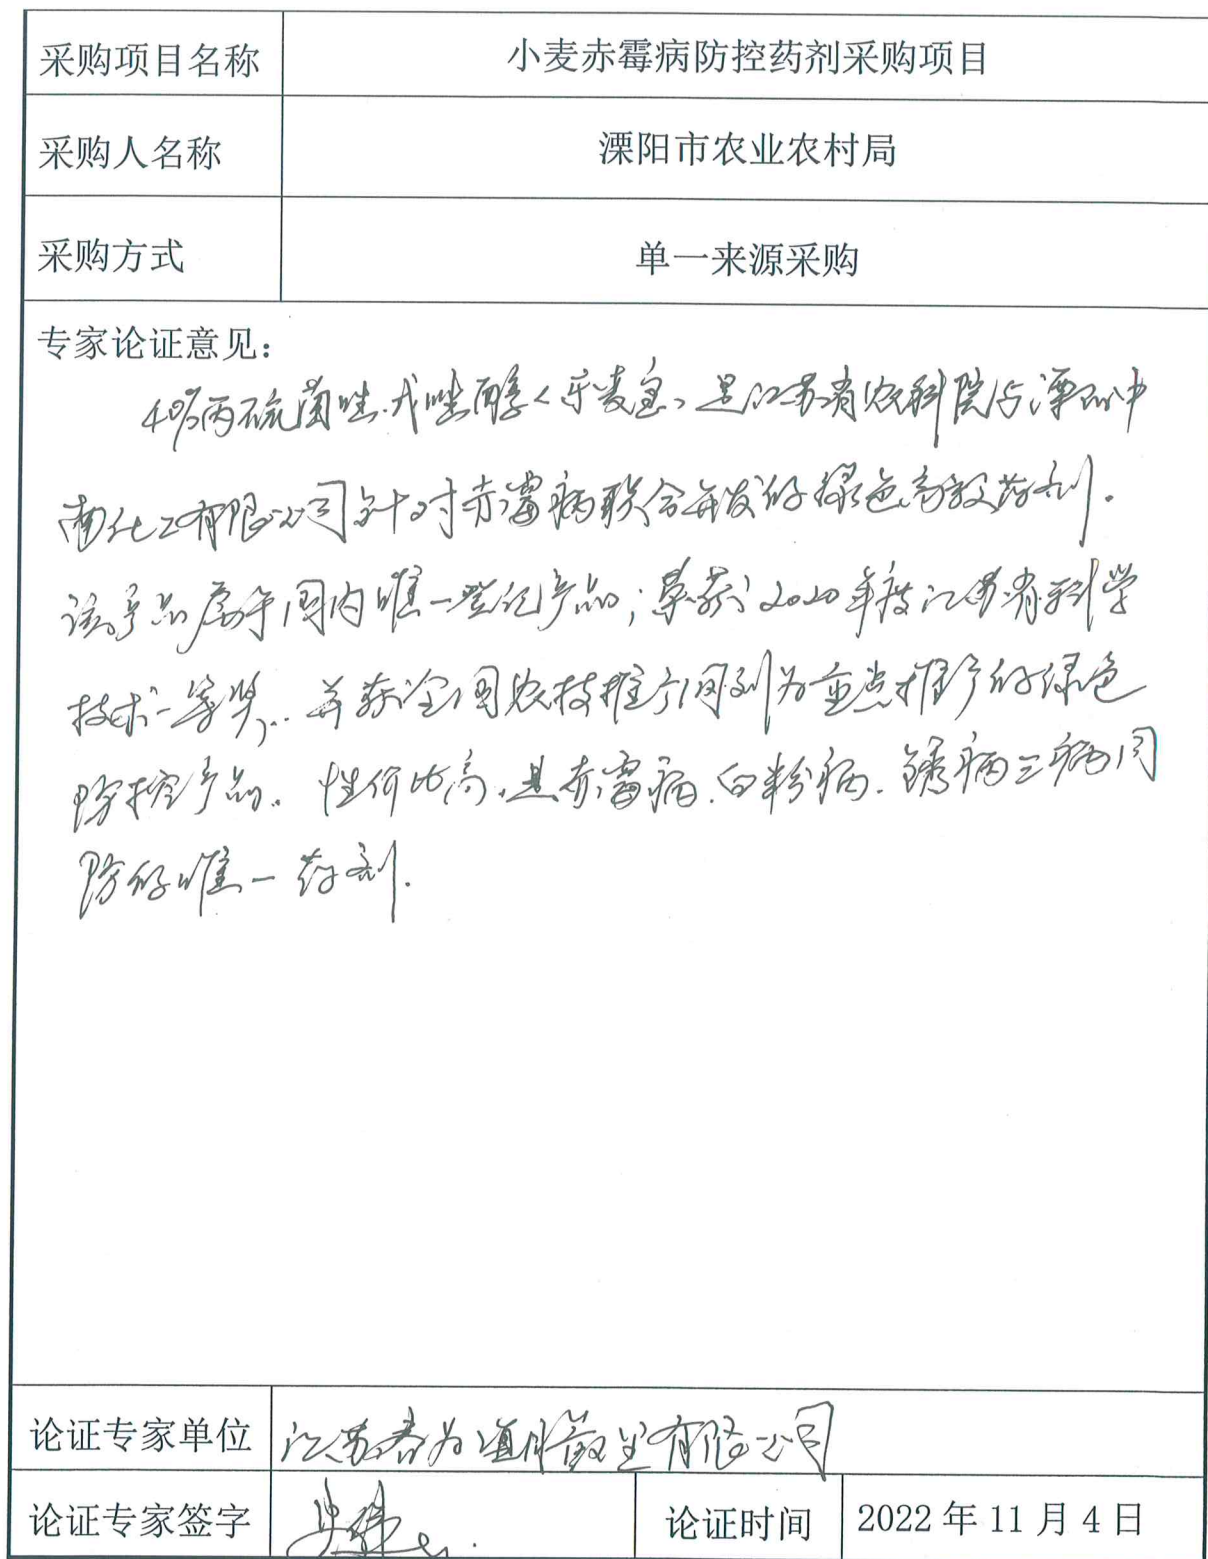 采购项目名称 小麦赤霉病防控药剂采购项目
采购人名称 溧阳市农业农村局
采购方式 单一来源采购
专家论证意见：
40%丙硫菌唑.戊唑醇 是江苏省农科院与溧阳中
南化工有限公司针对赤霉病联合研发的绿色高效药剂.
该产品属于国内唯一登记产品；荣获2020年度江苏省科学
技术一等奖, 并被全国农技推广网列为重点推广的绿色
防控产品. 性价比高,是赤霉病.白粉病.锈病三病同
防的唯一药剂.
论证专家单位 江苏春为 有限公司
论证专家签字 论证时间 2022年11月4日